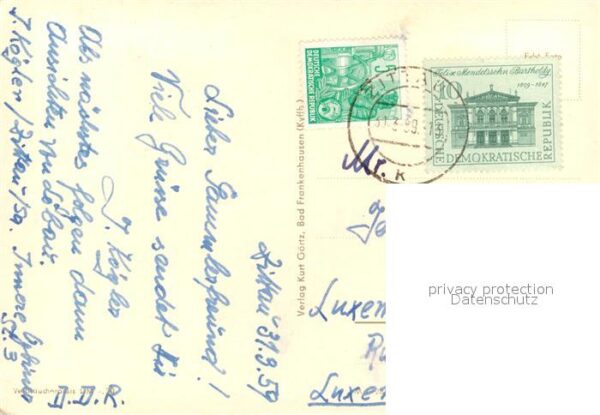 Zittau 31.3.59
Lieber Sammlerfreund!
Viele Grüsse sendet Dir
J. Kögler
Als nächstes folgen dann
Ansichten von Löbau.
J. Kögler, Zittau/Sa. Innere
St. 3
D.D.R.
Verlag Kurt Görtz, Bad Frankenhausen (Kyffh.)
5
DEUTSCHE
DEMOKRATISCHE REPUBLIK
ZITTAU
31.3.59
Felix Mendelssohn Bartholdy
1809-1847
10
DEUTSCHE
DEMOKRATISCHE REPUBLIK
Mr.
Luxem
Luxem
privacy protection
Datenschutz